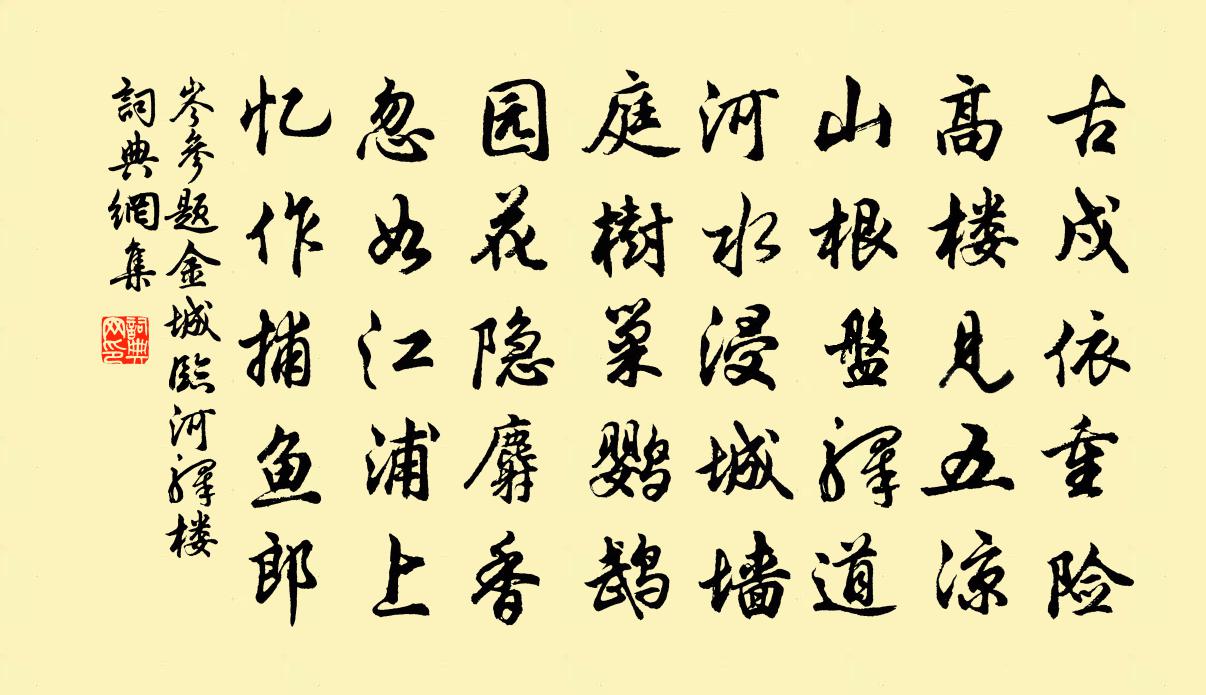 古戍依重险
高楼見五凉
山根盤驛道
河水浸城墙
庭樹巢鹦鹉
园花隐麝香
忽如江浦上
忆作捕鱼郎
岑参题金城臨河驛楼
詞典網集
詞典网印